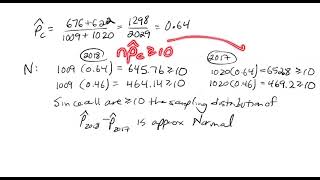 p̂c = 676+622 / 1009+1020 = 1298 / 2029 = 0.64
np̂c ≥ 10
2018 2017
N: 1009 (0.64) = 645.76 ≥ 10 1020 (0.64) = 652.8 ≥ 10
1009 (0.46) = 464.14 ≥ 10 1020 (0.46) = 469.2 ≥ 10
Since all are ≥ 10 the sampling distribution of
p̂2018 - p̂2017 is approx Normal